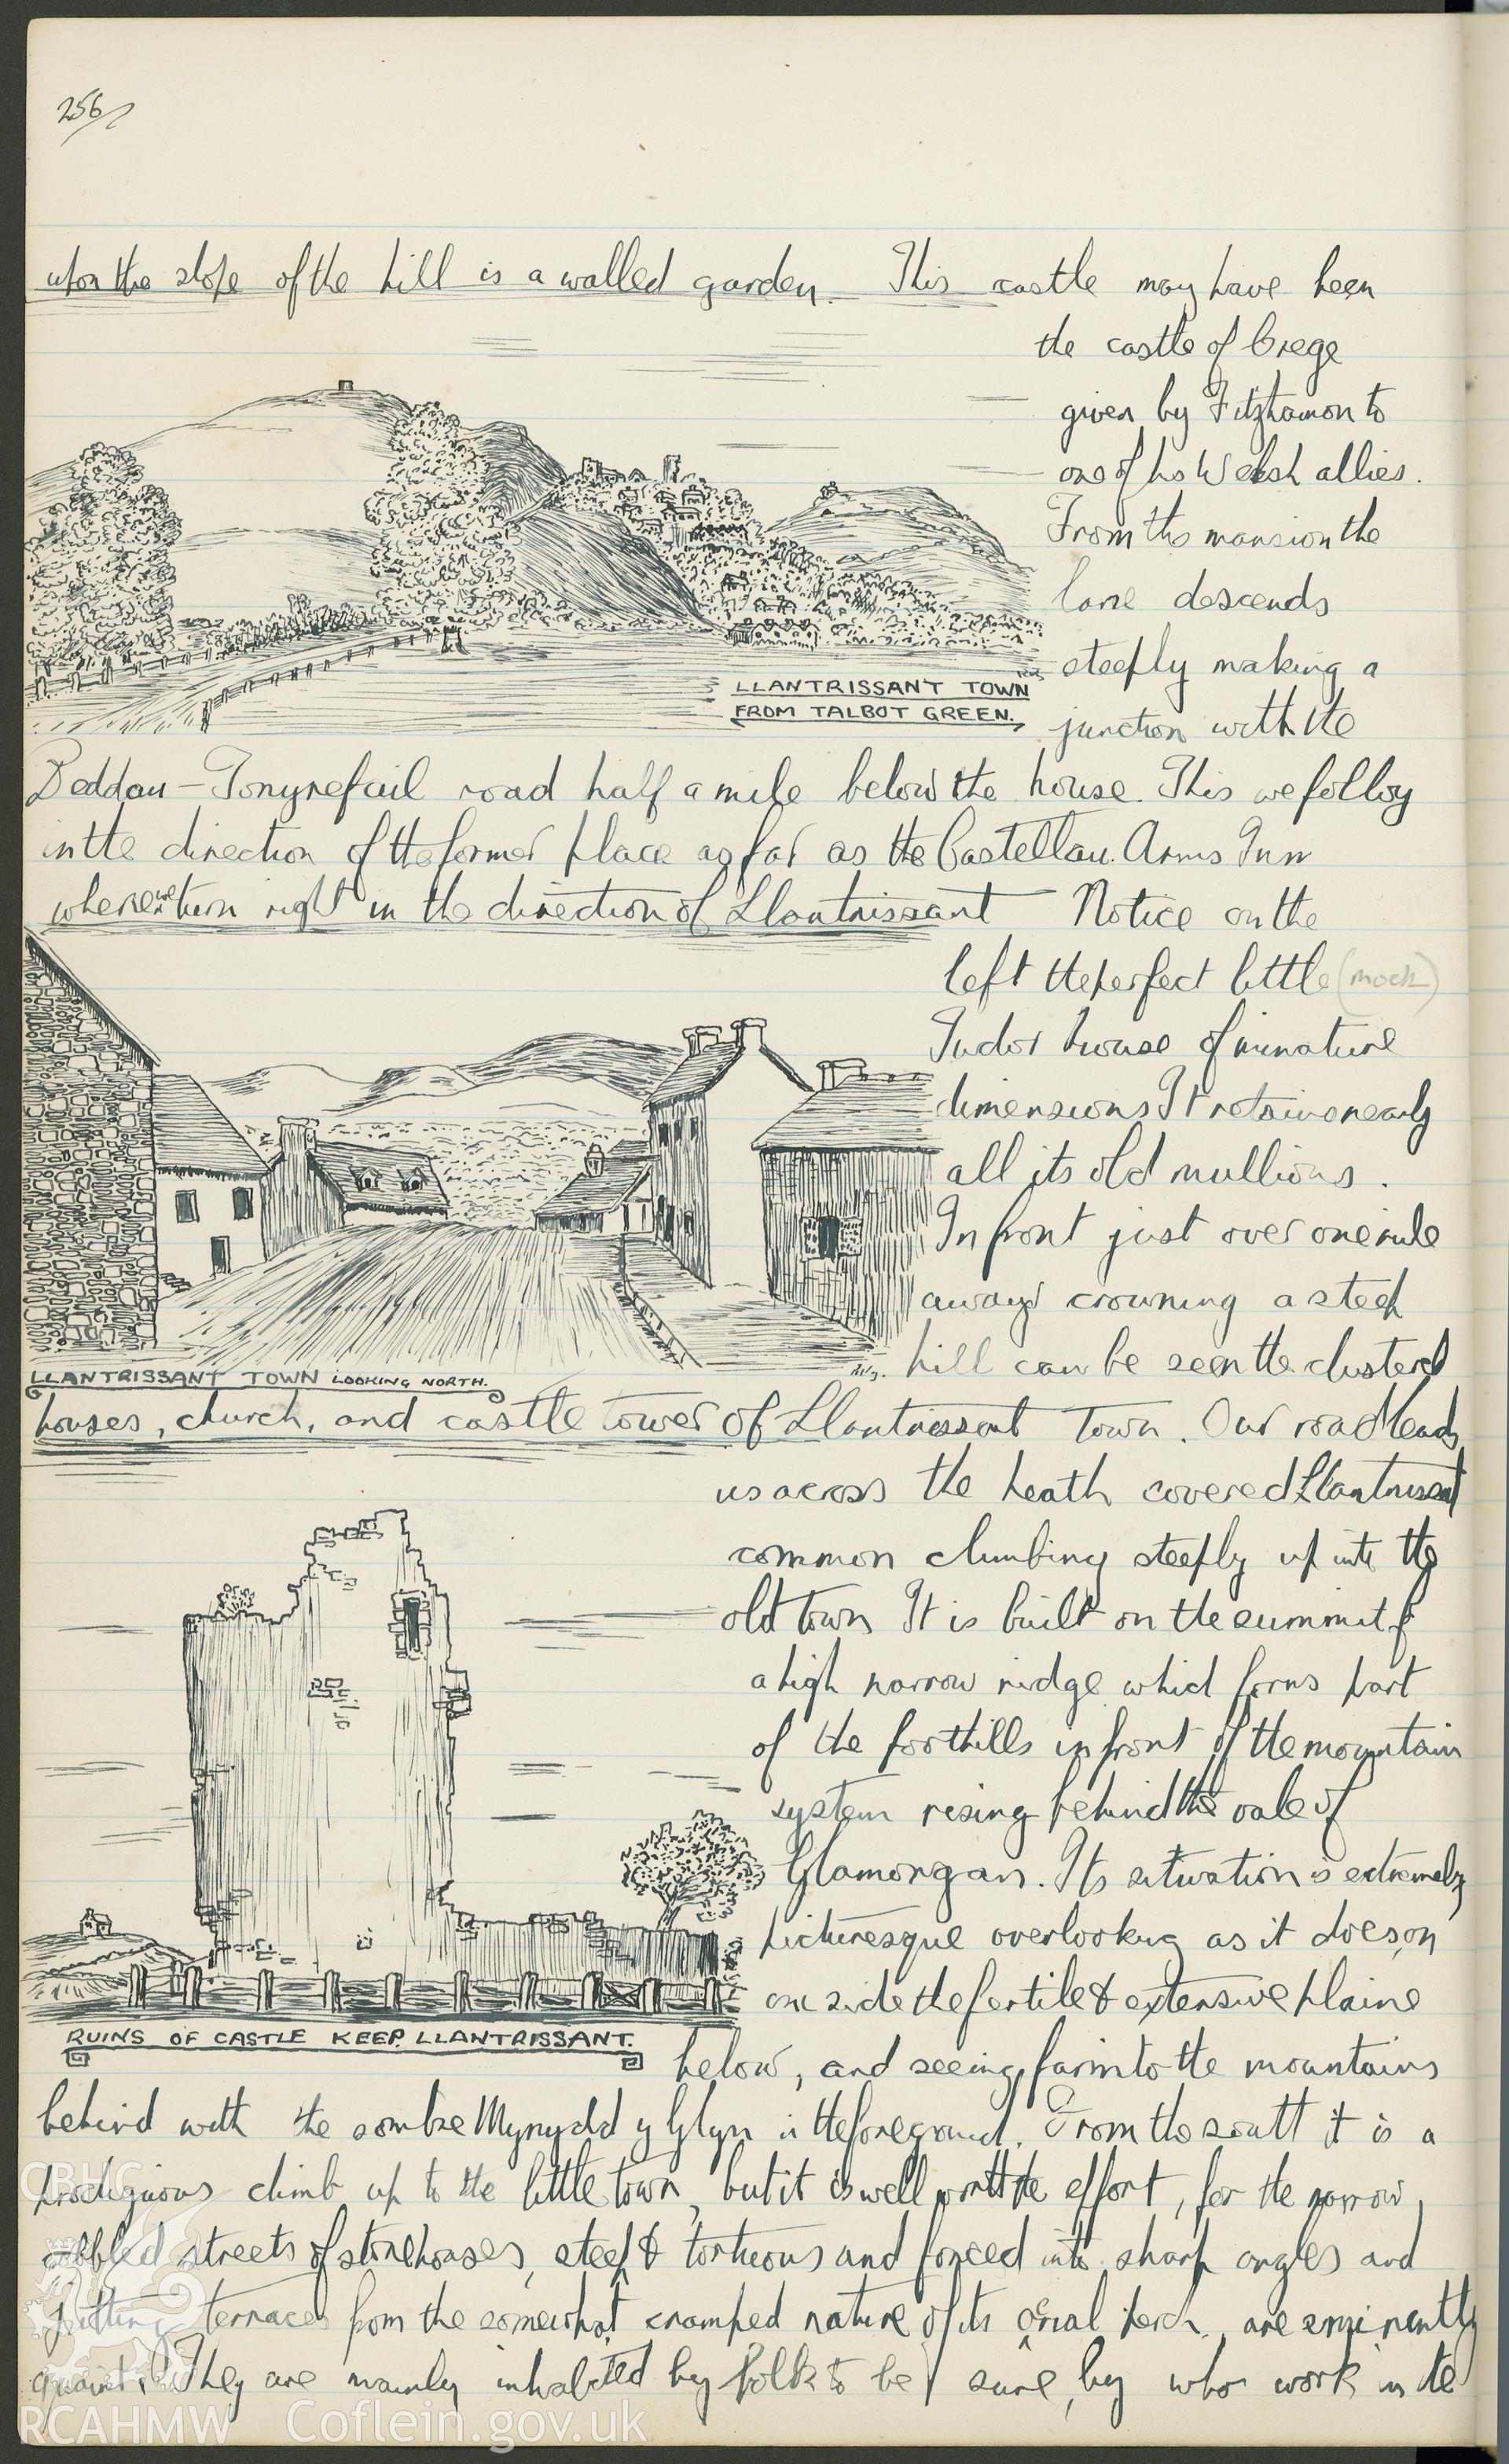 256/
upon the slope of the hill is a walled garden. This castle may have been
the castle of Crege
given by Fitzhamon to
one of his Welsh allies.
From the mansion the
lane descends
steeply making a
LLANTRISSANT TOWN
FROM TALBOT GREEN.
junction with the
Beddau - Tonyrefail road half a mile below the house. This we follow
in the direction of the former place as far as the Castellau Arms Inn
where we turn right in the direction of Llantrissant Notice on the
left the perfect little (mock)
Tudor house of minature
dimensions It retains nearly
all its old mullions.
In front just over one mile
away crowning a steep
hill can be seen the clustered
LLANTRISSANT TOWN LOOKING NORTH.
houses, church, and castle tower of Llantrissant Town. Our road leads
us across the heath covered Llantrissant
common climbing steeply up into the
old town It is built on the summit of
a high narrow ridge which forms part
of the foothills in front of the mountain
system rising behind the vale of
Glamorgan. Its situation is extremely
picturesque overlooking as it does on
one side the fertile & extensive plains
RUINS OF CASTLE KEEP. LLANTRISSANT.
below, and seeing far into the mountains
behind with the sombre Mynydd y Glyn in the foreground. From the south it is a
prodiguous climb up to the little town, but it is well worth the effort, for the narrow,
cobbled streets of stone houses, steep & tortuous and forced into sharp angles and
jutting terraces from the somewhat cramped nature of its perch, are eminently
quaint. They are mainly inhabited by folk to be sure, by who work in the
CBHC
RCAHMW Coflein.gov.uk